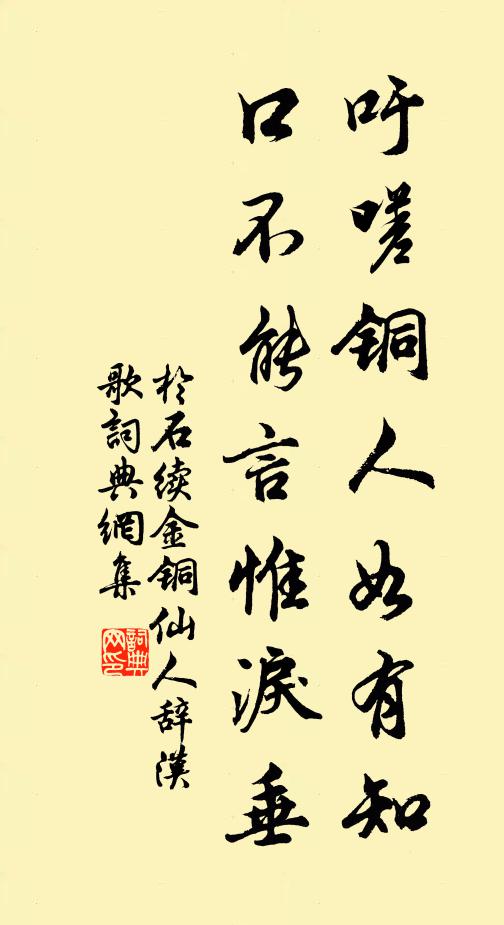 吁嗟铜人如有知
口不能言惟淚垂
於石续金铜仙人辞漢
歌詞典網集
詞典
网印